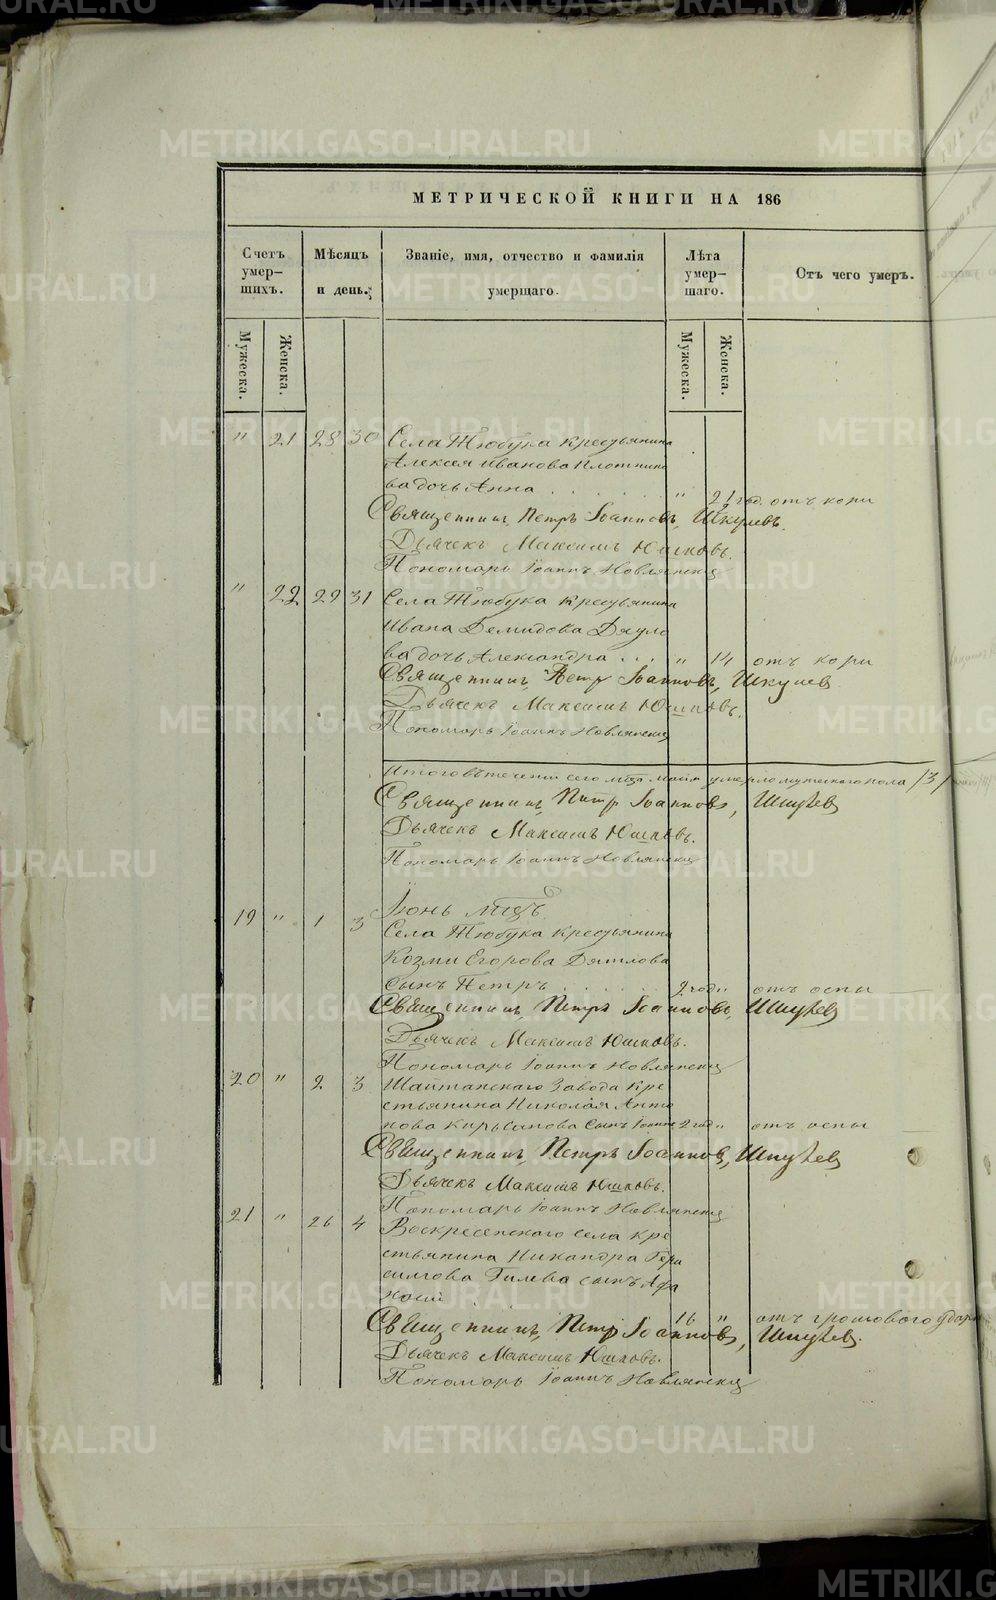 METRIKI.GASO-URAL.RU
МЕТРИЧЕСКОЙ КНИГИ НА 186
Счетъ умер-
шихъ.
Мѣсяцъ
и день.
Званіе, имя, отчество и фамилія
умершаго.
Лѣта
умер-
шаго.
Отъ чего умеръ.
Мужеска.
Женска.
Мужеска.
Женска.
" 21 28 30 Села Тюбука крестьянина
Алексея Иванова Плотнико
ва дочь Анна . . . . . . " 2 1/2 год. отъ кори
Священникъ Петръ Іоанновъ Шкулевъ.
Дьячекъ Максимъ Юшковъ.
Пономарь Іоаннъ Новлянскій
" 22 29 31 Села Тюбука крестьянина
Ивана Демидова Дядло
ва дочь Александра . . . " 14 отъ кори
Священникъ Петръ Іоанновъ, Шкулев
Дьячекъ Максимъ Юшковъ.
Пономарь Іоаннъ Новлянскій
Итого въ течении сего мѣсяца маія умерло мужескаго пола /3/
Священникъ Петръ Іоаннов, Шкулев
Дьячекъ Максимъ Юшковъ.
Пономарь Іоаннъ Новлянскій
Іюнь мѣсяцъ
19 " 1 3 Села Тюбука крестьянина
Козми Егорова Дятлова
сынъ Петръ . . . . . . 2 год " отъ оспы
Священникъ Петръ Іоанновъ, Шкулев
Дьячекъ Максимъ Юшковъ.
Пономарь Іоаннъ Новлянскій
20 " 2 3 Шайтанскаго Завода кре
стьянина Николая Анто
нова Кирьсанова сынъ Іоаннъ 2 год " отъ оспы
Священникъ, Петръ Іоаннов, Шкулев
Дьячекъ Максимъ Юшковъ.
Пономарь Іоаннъ Новлянскій
21 " 26 4 Воскресенскаго села кре
стьянина Никандра Гера
симова Гилева сынъ Афа
насій . . . 16 " отъ громоваго удара
Священникъ, Петръ Іоаннов, Шкулев.
Дьячекъ Максимъ Юшковъ.
Пономарь Іоаннъ Новлянскій